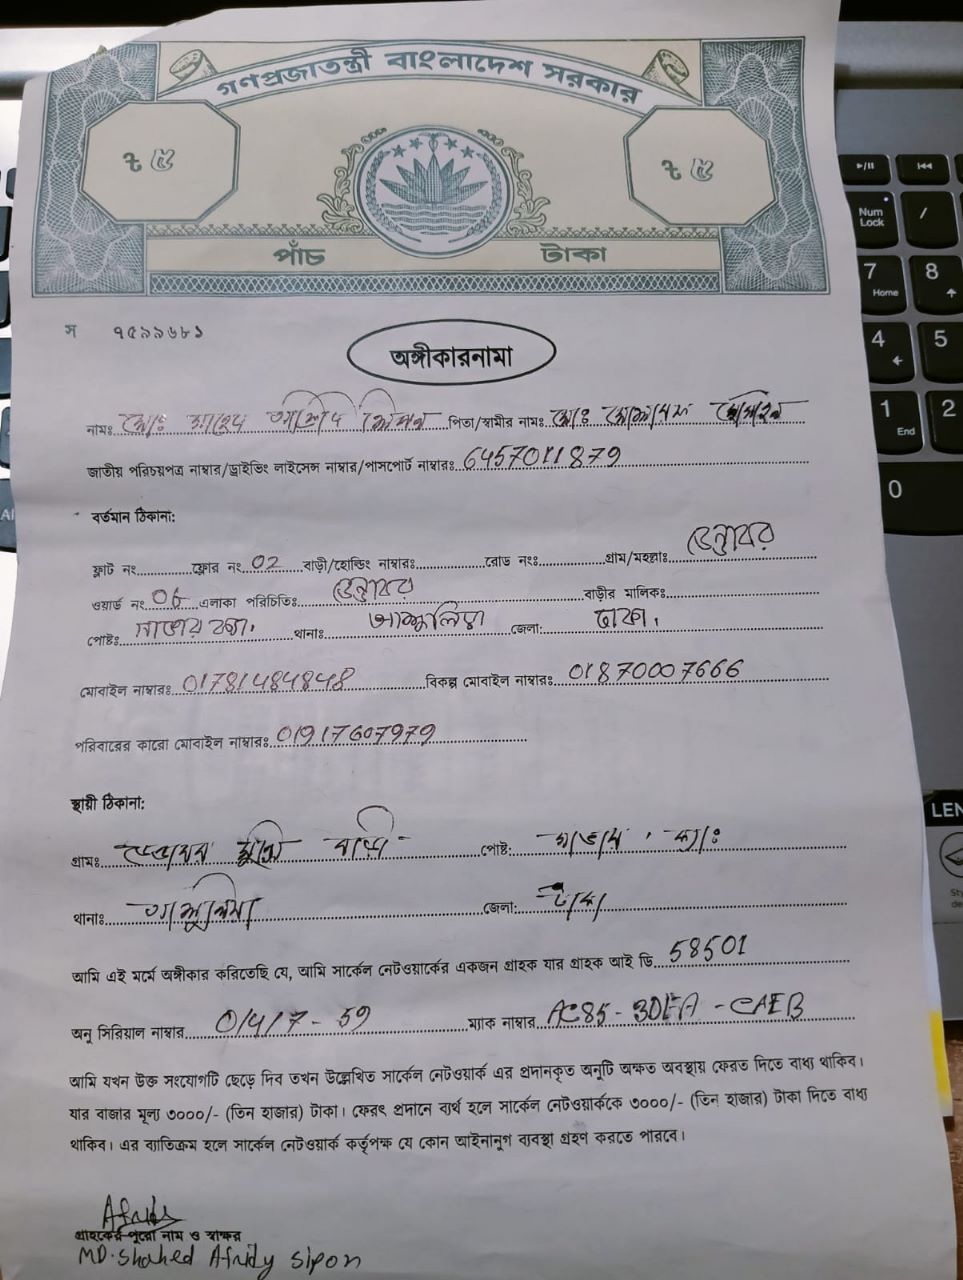 গণপ্রজাতন্ত্রী বাংলাদেশ সরকার
৳ ৫ ৳ ৫
পাঁচ টাকা
স ৭৫৯৯৬৮১
অঙ্গীকারনামা
নামঃ মোঃ সাহেদ আফ্রিদি সিপন পিতা/স্বামীর নামঃ মোঃ মোশারফ হোসেন
জাতীয় পরিচয়পত্র নাম্বার/ড্রাইভিং লাইসেন্স নাম্বার/পাসপোর্ট নাম্বারঃ 6457011879
বর্তমান ঠিকানা:
ফ্লাট নং ফ্লোর নং 02 বাড়ী/হোল্ডিং নাম্বারঃ রোড নংঃ গ্রাম/মহল্লাঃ
ওয়ার্ড নং 06 এলাকা পরিচিতিঃ বাড়ীর মালিকঃ
পোষ্টঃ সাভার ক্যা. থানাঃ আশুলিয়া জেলা: ঢাকা.
মোবাইল নাম্বারঃ 01781484848 বিকল্প মোবাইল নাম্বারঃ 01870007666
পরিবারের কারো মোবাইল নাম্বারঃ 01917607979
স্থায়ী ঠিকানা:
গ্রামঃ বাড়ি পোষ্ট: সাভার . ক্যাঃ
থানাঃ আশুলিয়া জেলা: ঢাকা
আমি এই মর্মে অঙ্গীকার করিতেছি যে, আমি সার্কেল নেটওয়ার্কের একজন গ্রাহক যার গ্রাহক আই ডি 58501
অনু সিরিয়াল নাম্বার 0/4/7 - 59 ম্যাক নাম্বার AC85 - 3DEA - CAEB
আমি যখন উক্ত সংযোগটি ছেড়ে দিব তখন উল্লেখিত সার্কেল নেটওয়ার্ক এর প্রদানকৃত অনুটি অক্ষত অবস্থায় ফেরত দিতে বাধ্য থাকিব।
যার বাজার মূল্য ৩০০০/- (তিন হাজার) টাকা। ফেরৎ প্রদানে ব্যর্থ হলে সার্কেল নেটওয়ার্ককে ৩০০০/- (তিন হাজার) টাকা দিতে বাধ্য
থাকিব। এর ব্যতিক্রম হলে সার্কেল নেটওয়ার্ক কর্তৃপক্ষ যে কোন আইনানুগ ব্যবস্থা গ্রহণ করতে পারবে।
Afridy
গ্রাহকের পুরো নাম ও স্বাক্ষর
MD. Shahed Afridy Sipon
Num Lock /
7 Home 8
4 5
1 End 2
0
LEN